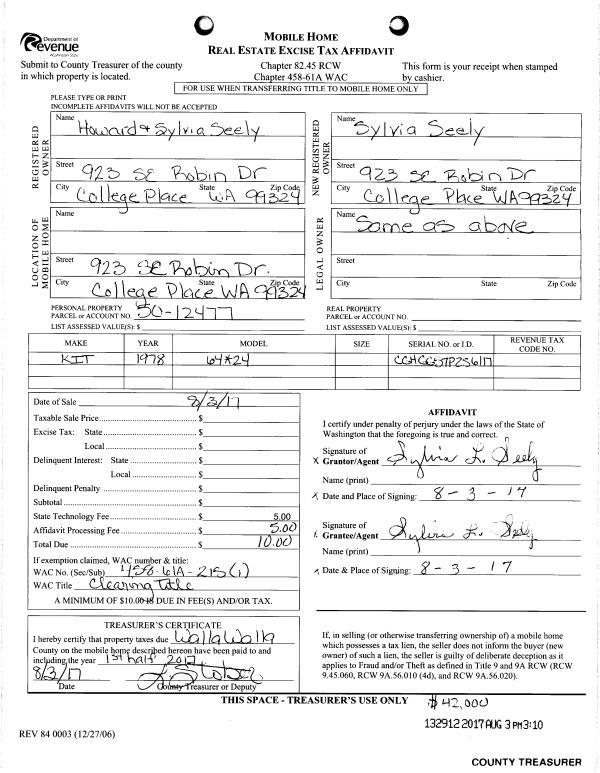 Department of
Revenue
Washington State
MOBILE HOME
REAL ESTATE EXCISE TAX AFFIDAVIT
Submit to County Treasurer of the county
in which property is located.
Chapter 82.45 RCW
Chapter 458-61A WAC
This form is your receipt when stamped
by cashier.
FOR USE WHEN TRANSFERRING TITLE TO MOBILE HOME ONLY
PLEASE TYPE OR PRINT
INCOMPLETE AFFIDAVITS WILL NOT BE ACCEPTED
REGISTERED OWNER
Name Howard & Sylvia Seely
Street 923 SE Robin Dr
City State Zip Code
College Place WA 99324
NEW REGISTERED OWNER
Name Sylvia Seely
Street 923 SE Robin Dr
City State Zip Code
College Place WA 99324
LOCATION OF MOBILE HOME
Name
Street 923 SE Robin Dr.
City State Zip Code
College Place WA 99324
LEGAL OWNER
Name Same as above
Street
City State Zip Code
PERSONAL PROPERTY
PARCEL or ACCOUNT NO. 50-12477
LIST ASSESSED VALUE(S): $
REAL PROPERTY
PARCEL or ACCOUNT NO.
LIST ASSESSED VALUE(S): $
MAKE YEAR MODEL SIZE SERIAL NO. or I.D. REVENUE TAX CODE NO.
KIT 1978 64*24
Date of Sale 8/3/17
Taxable Sale Price $
Excise Tax: State $
Local $
Delinquent Interest: State $
Local $
Delinquent Penalty $
Subtotal $
State Technology Fee $ 5.00
Affidavit Processing Fee $ 5.00
Total Due $ 10.00
If exemption claimed, WAC number & title:
WAC No. (Sec/Sub) 458-61A-215(i)
WAC Title Clearing Title
A MINIMUM OF $10.00 IS DUE IN FEE(S) AND/OR TAX.
AFFIDAVIT
I certify under penalty of perjury under the laws of the State of
Washington that the foregoing is true and correct.
Signature of
X Grantor/Agent Sylvia L. Seely
Name (print)
X Date and Place of Signing: 8-3-17
Signature of
Grantee/Agent Sylvia L. Seely
Name (print)
Date & Place of Signing: 8-3-17
TREASURER'S CERTIFICATE
I hereby certify that property taxes due Walla Walla
County on the mobile home described hereon have been paid to and
including the year 1st half 2017
8/3/17
Date County Treasurer or Deputy
If, in selling (or otherwise transferring ownership of) a mobile home
which possesses a tax lien, the seller does not inform the buyer (new
owner) of such a lien, the seller is guilty of deliberate deception as it
applies to Fraud and/or Theft as defined in Title 9 and 9A RCW (RCW
9.45.060, RCW 9A.56.010 (4d), and RCW 9A.56.020).
THIS SPACE - TREASURER'S USE ONLY
$42,000
132912 2017 AUG 3 PM 3:10
REV 84 0003 (12/27/06)
COUNTY TREASURER